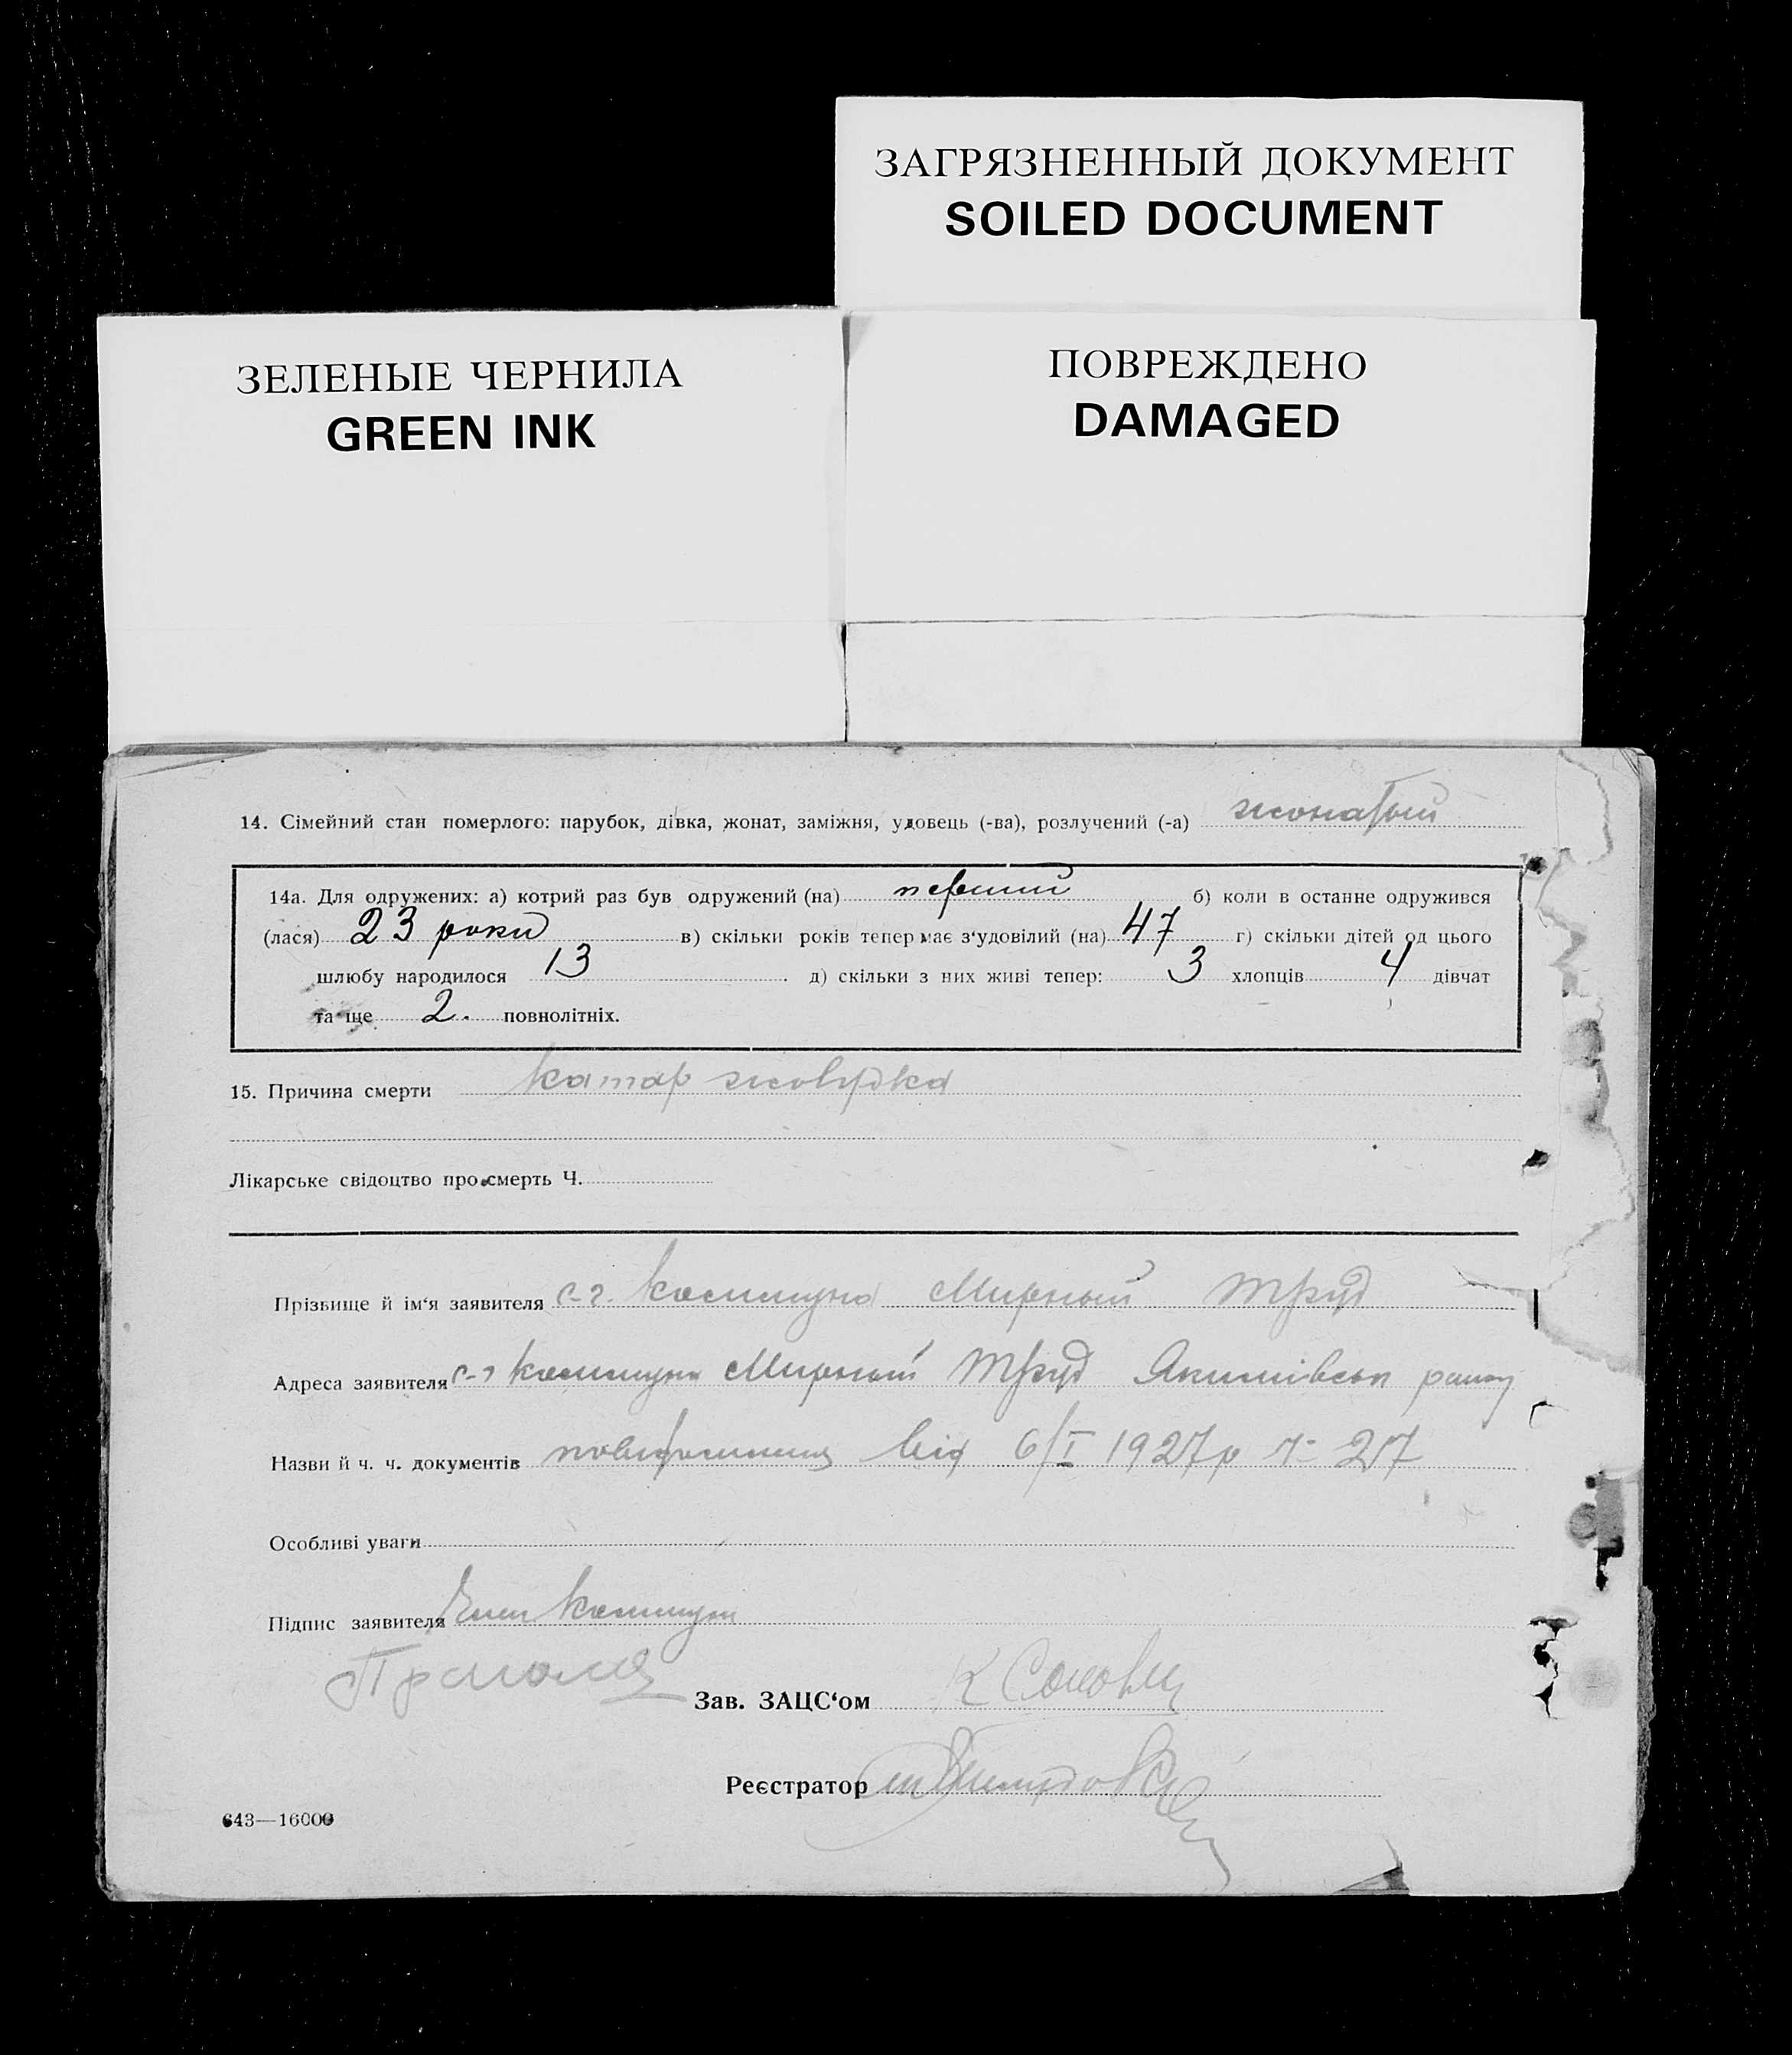 ЗАГРЯЗНЕННЫЙ ДОКУМЕНТ
SOILED DOCUMENT
ЗЕЛЕНЫЕ ЧЕРНИЛА
GREEN INK
ПОВРЕЖДЕНО
DAMAGED
14. Сімейний стан померлого: парубок, дівка, жонат, заміжня, удовець (-ва), розлучений (-а) жонатый
14а. Для одружених: а) котрий раз був одружений (на) перший б) коли в останне одружився
(лася) 23 роки в) скільки років тепер має з‘удовілий (на) 47 г) скільки дітей од цього
шлюбу народилося 13 д) скільки з них живі тепер: 3 хлопців 4 дівчат
та ще 2. повнолітніх.
15. Причина смерти катар жолудка
Лікарське свідоцтво про смерть Ч.
Прізвище й ім‘я заявителя с-г. комуна Мирный Труд
Адреса заявителя с-г комуна Мирный Труд Якимівськ району
Назви й ч. ч. документів від 6/I 1927р ч- 217
Особливі уваги
Підпис заявителя комуни
Зав. ЗАЦС‘ом
Реєстратор
643—16000